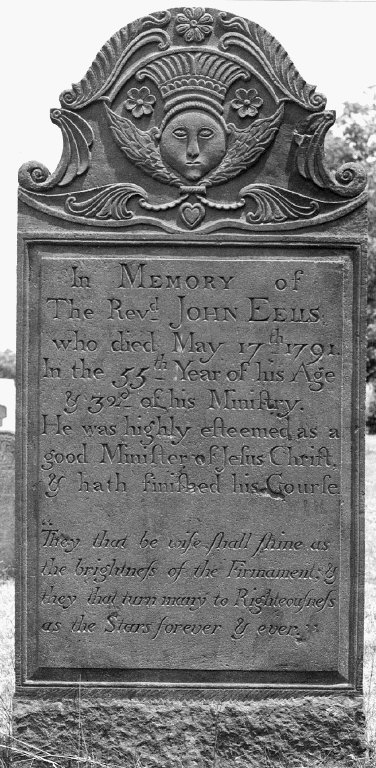 In MEMORY of
The Revd. JOHN EELLS.
who died May 17th 1791.
In the 55th Year of his Age
& 32d. of his Miniſtry.
He was highly eſteemed as a
good Miniſter of Jeſus Chriſt.
& hath finiſhed his Courſe
"They that be wiſe ſhall ſhine as
the brightneſs of the Firmament; &
they that turn many to Righteouſneſs
as the Stars forever & ever."